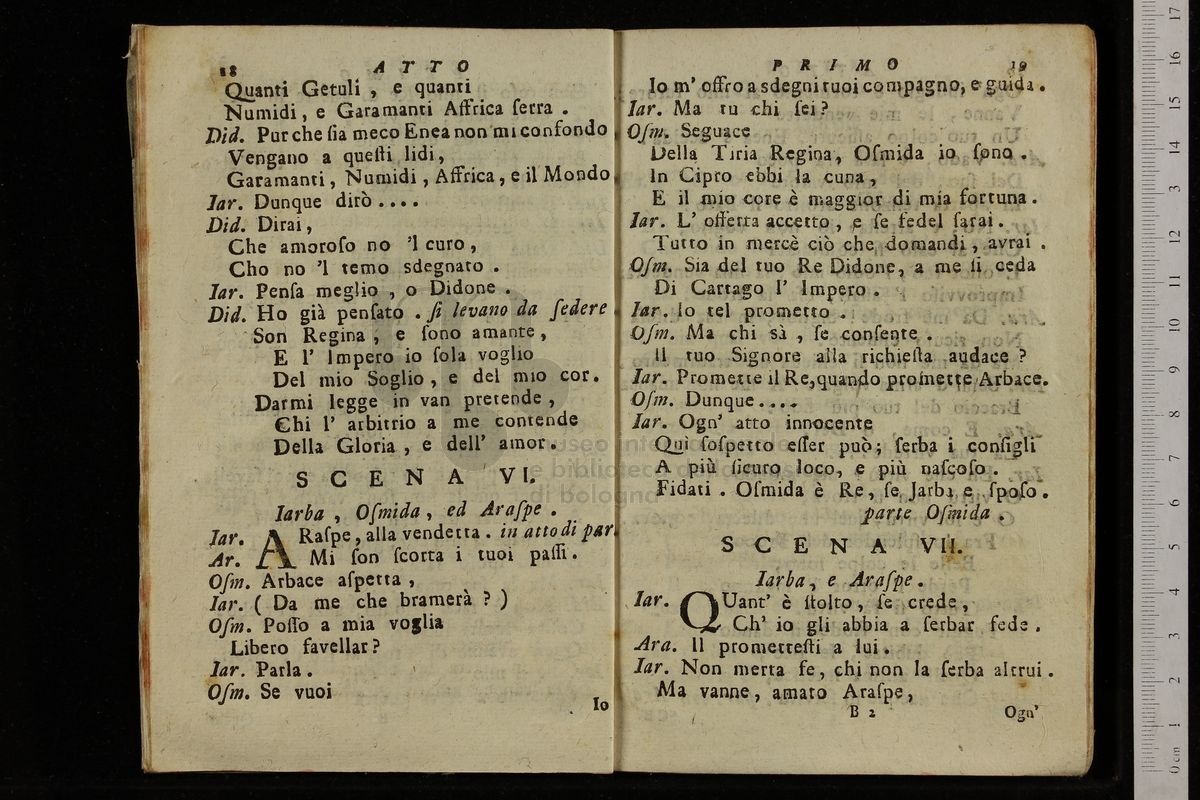 18 ATTO
Quanti Getuli , e quanti
Numidi, e Garamanti Affrica ſerra .
Did. Purche ſia meco Enea non mi confondo
Vengano a queſti lidi,
Garamanti, Numidi, Affrica, e il Mondo.
Iar. Dunque dirò....
Did. Dirai,
Che amoroſo no 'l curo,
Cho no 'l temo sdegnato .
Iar. Penſa meglio , o Didone .
Did. Ho già penſato . ſi levano da ſedere
Son Regina, e ſono amante,
E l' Impero io ſola voglio
Del mio Soglio, e del mio cor.
Darmi legge in van pretende,
Chi l' arbitrio a me contende
Della Gloria, e dell' amor.
SCENA VI.
Iarba, Oſmida, ed Araſpe.
Iar. ARaſpe, alla vendetta. in atto di par.
Ar. Mi ſon ſcorta i tuoi paſſi.
Oſm. Arbace aſpetta,
Iar. ( Da me che bramerà ? )
Oſm. Poſſo a mia voglia
Libero favellar?
Iar. Parla.
Oſm. Se vuoi
Io
PRIMO 19
Io m' offro a sdegni tuoi compagno, e guida.
Iar. Ma tu chi ſei?
Oſm. Seguace
Della Tiria Regina, Oſmida io ſono.
In Cipro ebbi la cuna,
E il mio core è maggior di mia fortuna.
Iar. L' offerta accetto, e ſe fedel ſarai.
Tutto in mercè ciò che domandi, avrai .
Oſm. Sia del tuo Re Didone, a me ſi ceda
Di Cartago l' Impero .
Iar. Io tel prometto .
Oſm. Ma chi sà , ſe conſente .
Il tuo Signore alla richieſta audace ?
Iar. Promette il Re, quando promette Arbace.
Oſm. Dunque....
Iar. Ogn' atto innocente
Qui ſoſpetto eſſer può; ſerba i conſigli
A più ſicuro loco, e più naſcoſo .
Fidati . Oſmida è Re, ſe Jarba e ſpoſo.
parte Oſmida .
SCENA VII.
Iarba, e Araſpe.
Iar. QUant' è ſtolto, ſe crede,
Ch' io gli abbia a ſerbar fede.
Ara. Il prometteſti a lui.
Iar. Non merta fe, chi non la ſerba altrui.
Ma vanne, amato Araſpe,
B 2 Ogn'